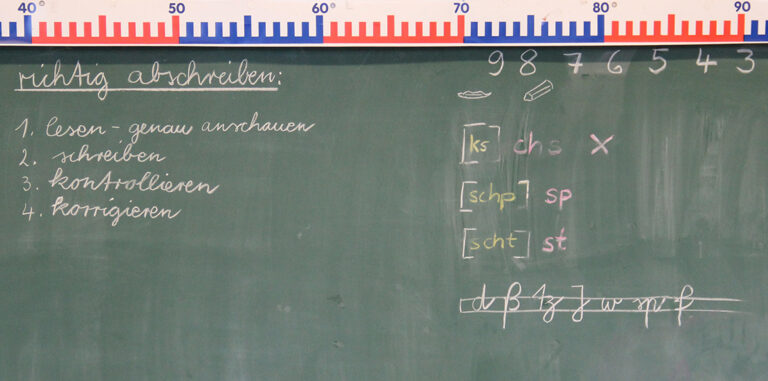 40° 50 60° 70 80° 90
9 8 7 6 5 4 3
richtig abschreiben:
1. lesen - genau anschauen
2. schreiben
3. kontrollieren
4. korrigieren
[ks] chs x
[schp] sp
[scht] st
d ß tz J w sp